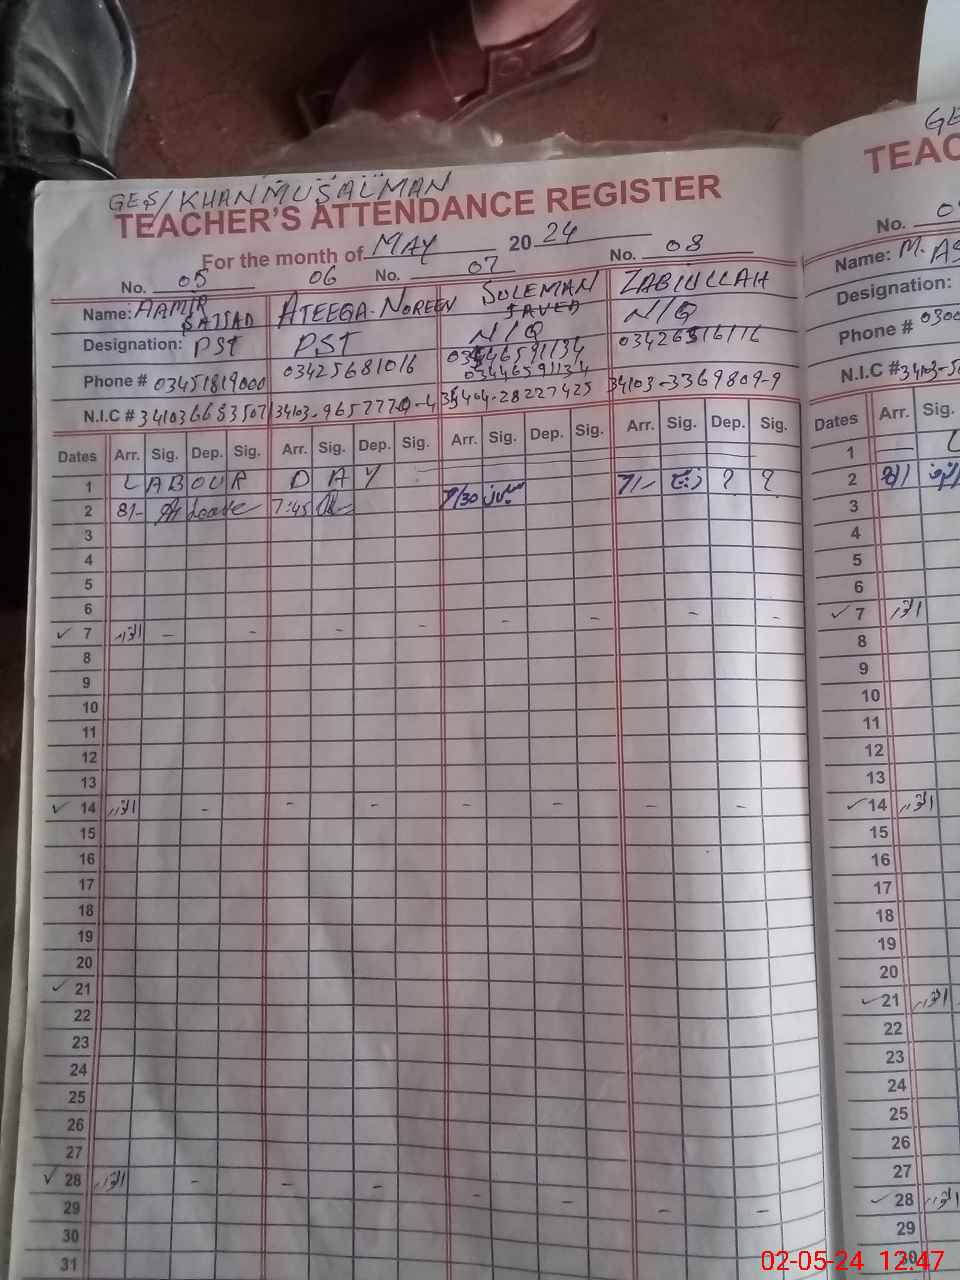 GES/KHANMUSALMAN
TEACHER'S ATTENDANCE REGISTER
For the month of MAY 2024
No. 05 06 No. 07 No. 08
Name: AAMIR SAJJAD ATEEQA-NOREEN SULEMAN JAVED ZABIULLAH
Designation: PST PST N/Q N/Q
Phone # 03451819000 03425681016 03446591134 03426516116
03446591134
N.I.C # 34103-3369809-9
Dates Arr. Sig. Dep. Sig. Arr. Sig. Dep. Sig. Arr. Sig. Dep. Sig. Arr. Sig. Dep. Sig.
1 LABOUR DAY
2 8/- Leave 7:45 7/30 7/- ? ?
3
4
5
6
✓ 7 اتوار - - - - - - - -
8
9
10
11
12
13
✓ 14 اتوار - - - - - - -
15
16
17
18
19
20
✓ 21
22
23
24
25
26
27
✓ 28 اتوار - - - - - - -
29
30
31
GE
TEAC
No.
Name: M. AS
Designation:
Phone # 0300
N.I.C # 34103-5
Dates Arr. Sig.
1
2 8/
3
4
5
6
✓ 7 اتوار
8
9
10
11
12
13
✓ 14 اتوار
15
16
17
18
19
20
✓ 21 اتوار
22
23
24
25
26
27
✓ 28 اتوار
29
30
02-05-24 12:47